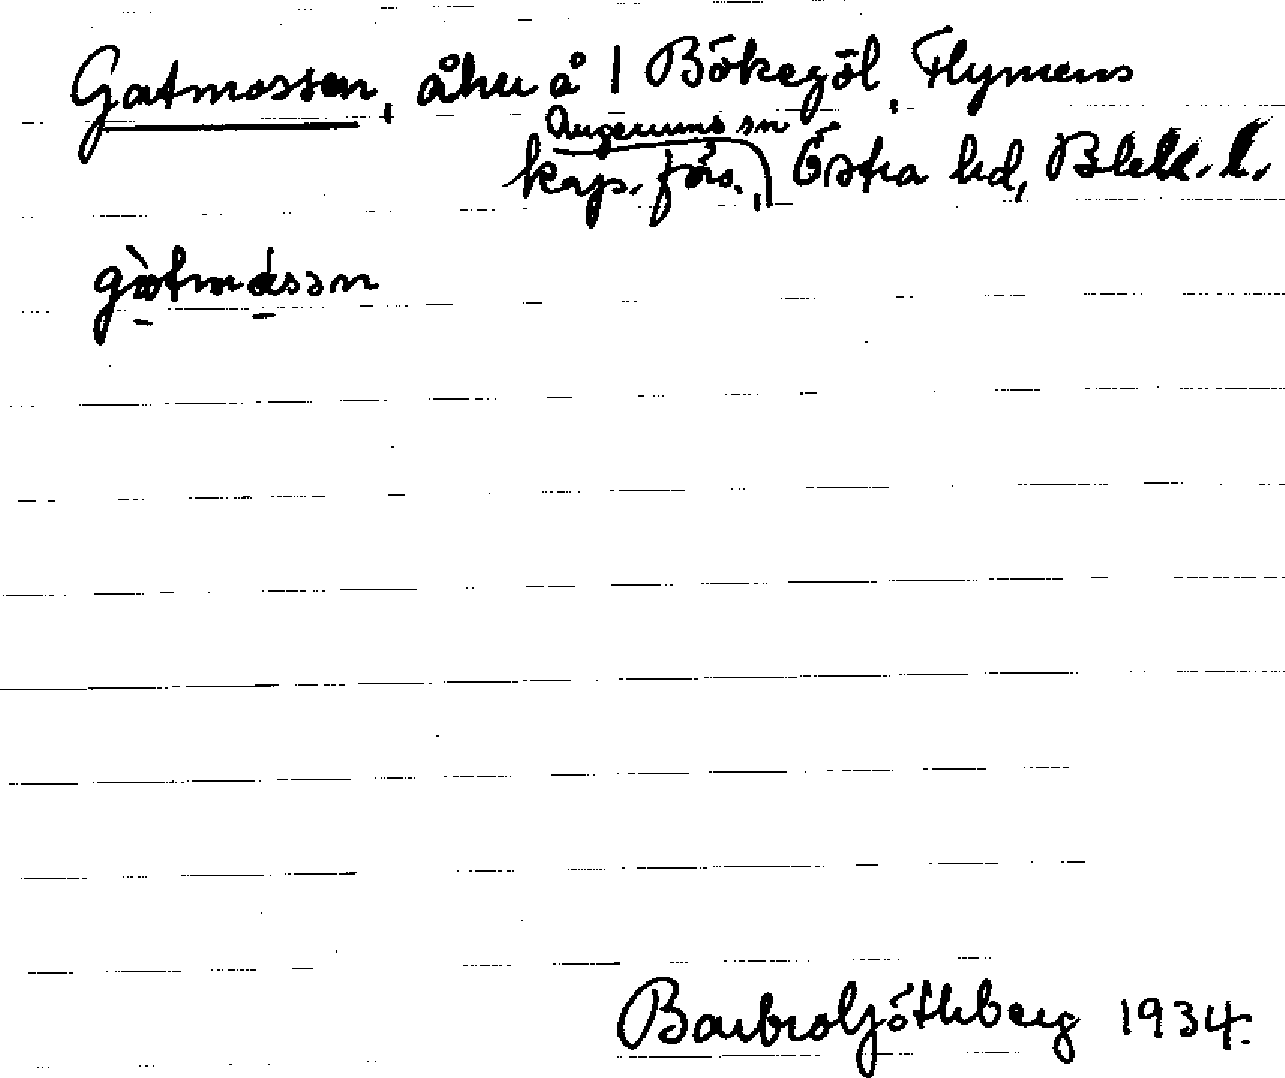 Gatmossen, åker å 1 Bökegöl, Flymens
Augerums sn
kap. förs., Östra hd, Blek. l.
gàtmåsən
Barbro Göthberg 1934.